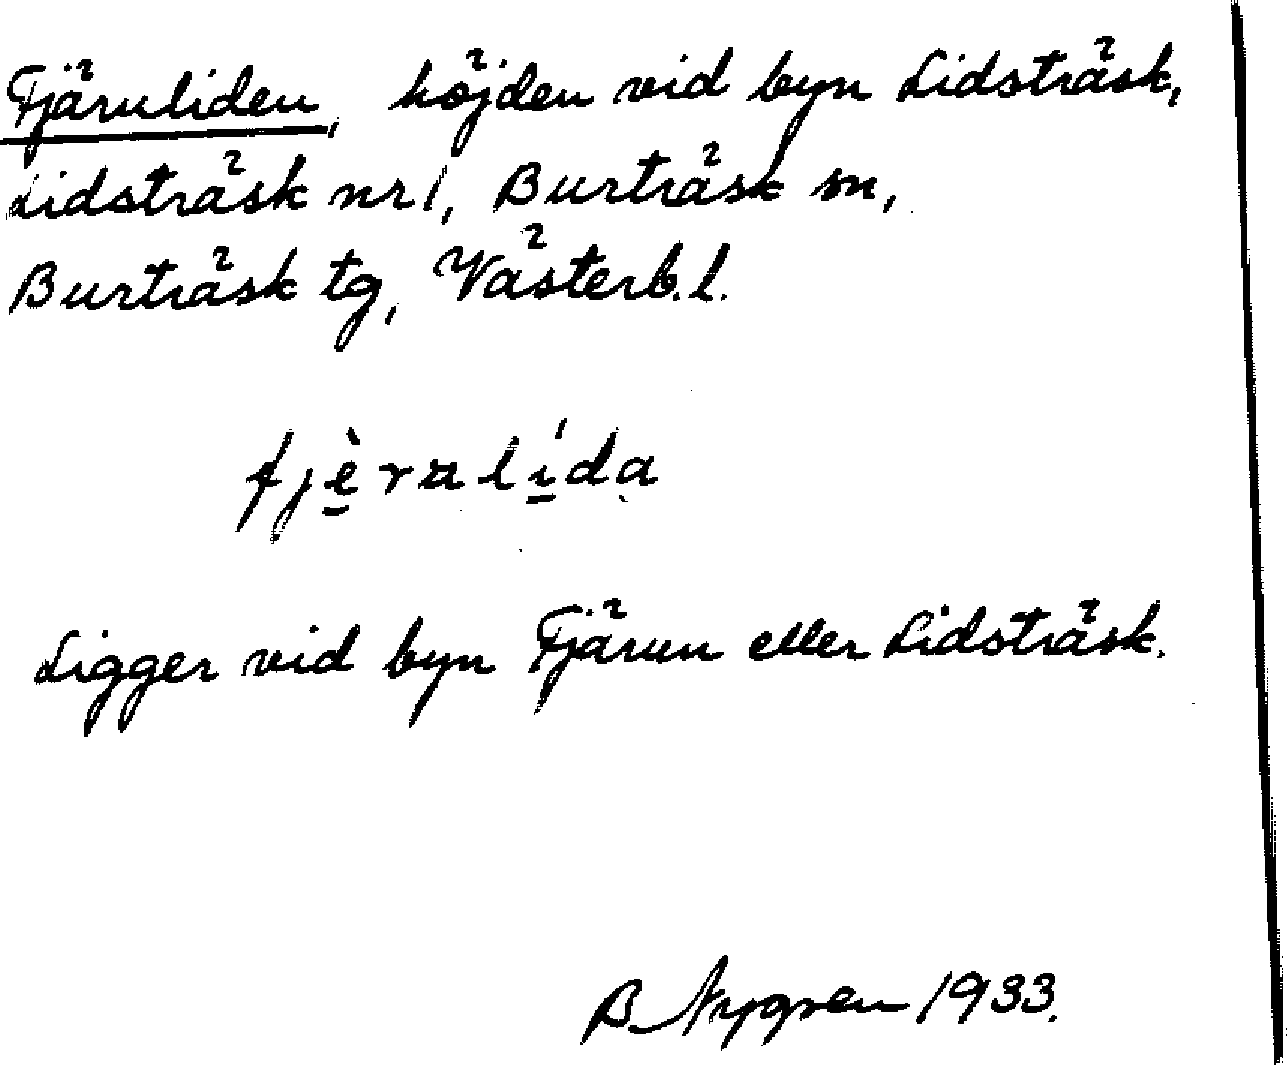 Fjäruliden, höjden vid byn Lidsträsk,
Lidsträsk nr 1, Burträsk sn,
Burträsk tg, Västerb. l.
fjèralída
Ligger vid byn Fjärun eller Lidsträsk.
B Nygren 1933.